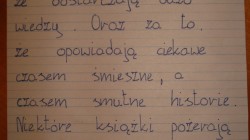 że dostarczają dużo
wiedzy. Oraz za to.
że opowiadają ciekawe
czasem śmieszne, a
czasem smutne historie.
Niektóre książki pożerają